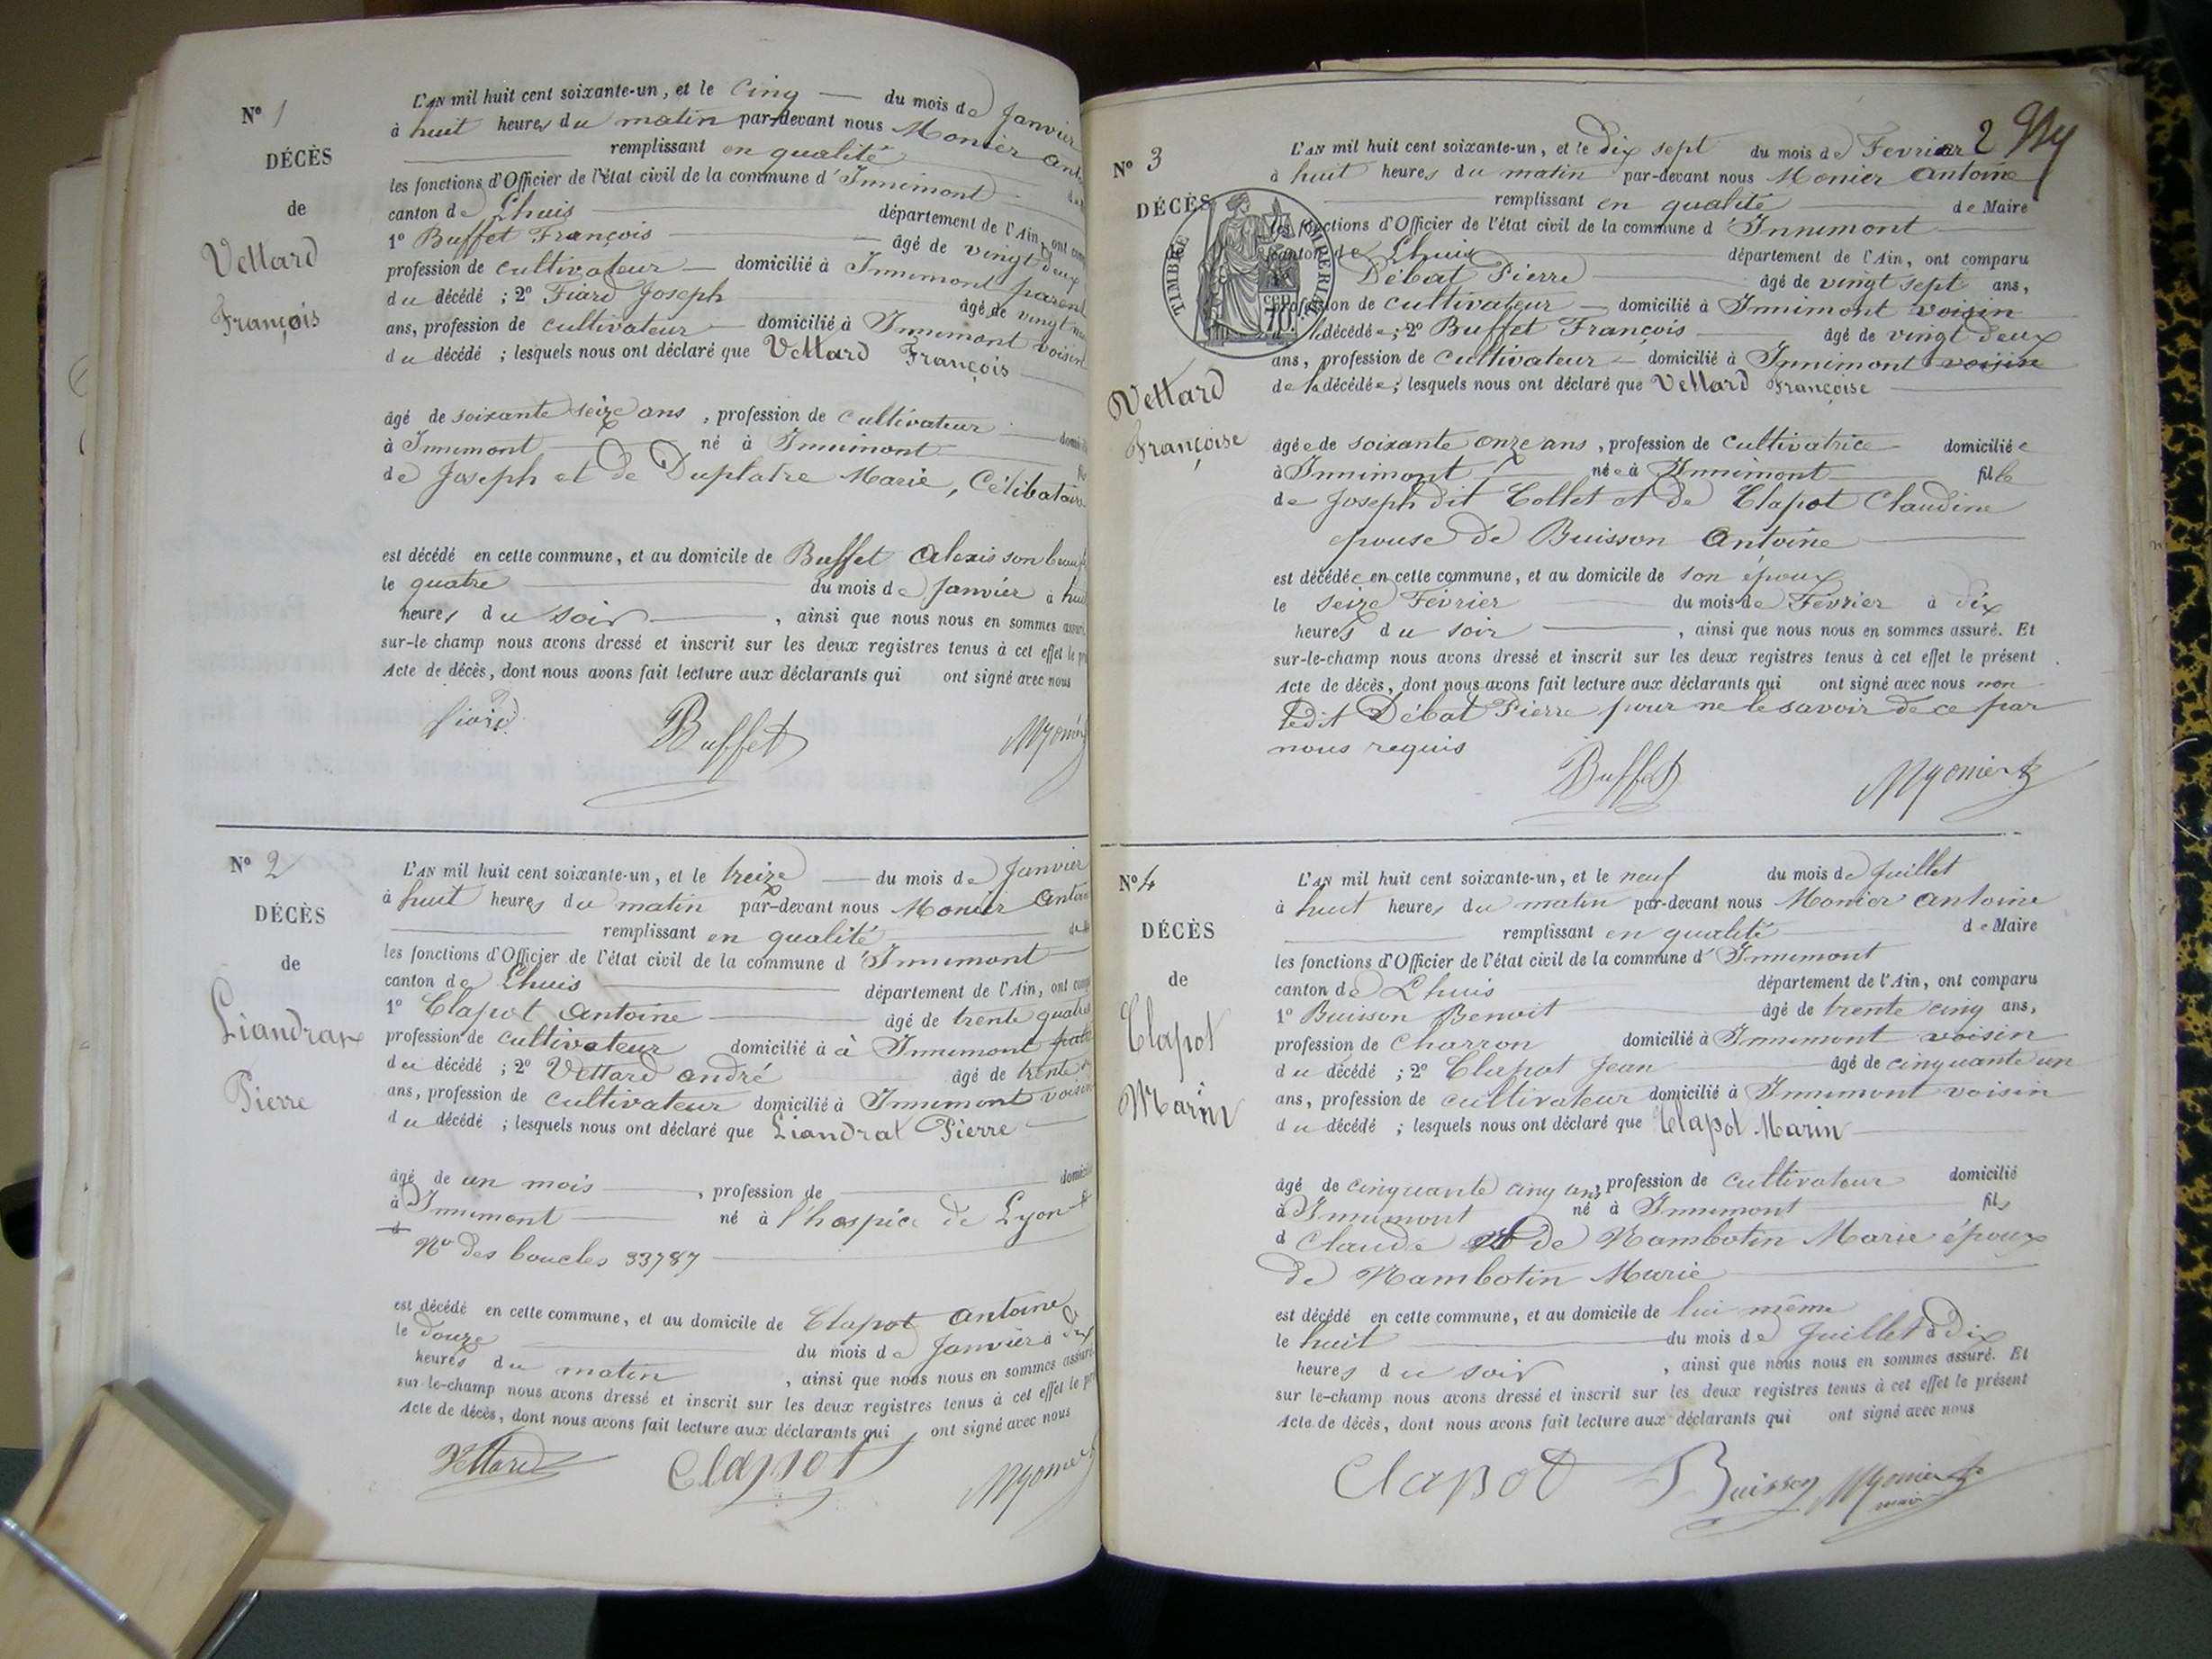 Nº 1
DÉCÈS
de
Vettard
François
L'AN mil huit cent soixante-un, et le cinq du mois de Janvier
à huit heures du matin par-devant nous Monier
remplissant en qualité
les fonctions d'Officier de l'état civil de la commune d'Innimont
canton de Lhuis département de l'Ain, ont
1º Buffet François âgé de vingt deux
profession de cultivateur domicilié à Innimont parent
du décédé ; 2º Fiard Joseph âgé de vingt
ans, profession de cultivateur domicilié à Innimont voisin
du décédé ; lesquels nous ont déclaré que Vettard François
âgé de soixante seize ans , profession de cultivateur
à Innimont né à Innimont
de Joseph et de Duplatre Marie, Célibataire
est décédé en cette commune, et au domicile de Buffet Alexis son
le quatre du mois de Janvier à
heures du soir , ainsi que nous nous en sommes
sur-le champ nous avons dressé et inscrit sur les deux registres tenus à cet effet le
Acte de décès, dont nous avons fait lecture aux déclarants qui ont signé avec nous
fiard Buffet Monier
Nº 2
DÉCÈS
de
Liandrax
Pierre
L'AN mil huit cent soixante-un, et le treize du mois de Janvier
à huit heures du matin par-devant nous Monier
remplissant en qualité
les fonctions d'Officier de l'état civil de la commune d'Innimont
canton de Lhuis département de l'Ain, ont
1º Clapot Antoine âgé de trente quatre
profession de cultivateur domicilié à à Innimont
du décédé ; 2º Vettard André âgé de trente
ans, profession de cultivateur domicilié à Innimont voisin
du décédé ; lesquels nous ont déclaré que Liandrax Pierre
âgé de un mois , profession de
à Innimont né à l'hospice de Lyon
Nº des boucles 33787
est décédé en cette commune, et au domicile de Clapot Antoine
le douze du mois de Janvier à
heures du matin , ainsi que nous nous en sommes assuré.
sur-le-champ nous avons dressé et inscrit sur les deux registres tenus à cet effet le
Acte de décès, dont nous avons fait lecture aux déclarants qui ont signé avec nous
Vettard Clapot Monier
2
Nº 3
DÉCÈS
TIMBRE IMPERIAL
70.
Vettard
Françoise
L'AN mil huit cent soixante-un, et le dix sept du mois de Fevrier
à huit heures du matin par-devant nous Monier Antoine
remplissant en qualité de Maire
les fonctions d'Officier de l'état civil de la commune d'Innimont
canton de Lhuis département de l'Ain, ont comparu
Débat Pierre âgé de vingt sept ans,
profession de cultivateur domicilié à Innimont voisin
décédée ; 2º Buffet François âgé de vingt deux
ans, profession de cultivateur domicilié à Innimont voisin
de la décédée ; lesquels nous ont déclaré que Vettard Françoise
âgée de soixante onze ans , profession de cultivatrice domiciliée
à Innimont née à Innimont fille
de Joseph dit Collet et de Clapot Claudine
épouse de Buisson Antoine
est décédée en cette commune, et au domicile de son époux
le seize Février du mois de Fevrier à dix
heures du soir , ainsi que nous nous en sommes assuré. Et
sur-le-champ nous avons dressé et inscrit sur les deux registres tenus à cet effet le présent
Acte de décès, dont nous avons fait lecture aux déclarants qui ont signé avec nous non
ledit Débat Pierre pour ne le savoir de ce par
nous requis
Buffet Monier
Nº 4
DÉCÈS
de
Clapot
Marin
L'AN mil huit cent soixante-un, et le neuf du mois de Juillet
à huit heures du matin par-devant nous Monier Antoine
remplissant en qualité de Maire
les fonctions d'Officier de l'état civil de la commune d'Innimont
canton de Lhuis département de l'Ain, ont comparu
1º Buisson Benoit âgé de trente cinq ans,
profession de Charron domicilié à Innimont voisin
du décédé ; 2º Clapot Jean âgé de cinquante un
ans, profession de cultivateur domicilié à Innimont voisin
du décédé ; lesquels nous ont déclaré que Clapot Marin
âgé de cinquante cinq ans, profession de cultivateur domicilié
à Innimont né à Innimont fils
d Claude et de Nambotin Marie époux
de Nambotin Marie
est décédé en cette commune, et au domicile de lui même
le huit du mois de Juillet à Dix
heures du soir , ainsi que nous nous en sommes assuré. Et
sur le-champ nous avons dressé et inscrit sur les deux registres tenus à cet effet le présent
Acte de décès, dont nous avons fait lecture aux déclarants qui ont signé avec nous
Clapot Buisson Monier
maire